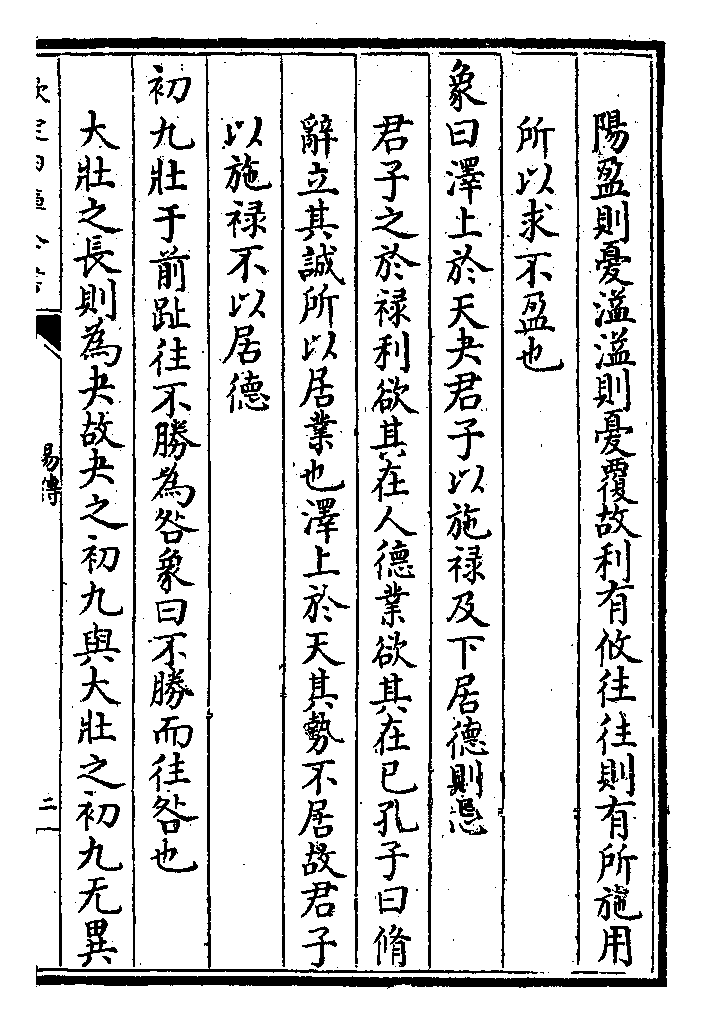 陽盈則憂溢溢則憂覆故利有攸往往則有所施用
所以求不盈也
象曰澤上於天夬君子以施禄及下居德則忌
君子之於禄利欲其在人德業欲其在已孔子曰脩
辭立其誠所以居業也澤上於天其勢不居故君子
以施禄不以居德
初九壯于前趾往不勝為咎象曰不勝而往咎也
大壯之長則為夬故夬之初九與大壯之初九无異
易傳
二